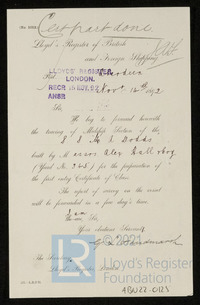 Lloyd's Register of British
and Foreign Shipping,
Port Aberdeen
LLOYD'S REGISTER,
LONDON.
RECD 15 NOV. 92
ANSD
Nov. 14th 1892
Sir,
We beg to forward herewith
the tracing of Midship Section of the
S.S.
built by Messrs Alex Hall & Co
(Yard No 348) for the preparation of
the first entry Certificate of Class.
The report of survey on the vessel
will be forwarded in a few days' time.
I am Sir,
Your obedient Servant,
The Secretary,
Lloyd's Register
ABU22-0123
© 2021
Lloyd's Register
Foundation